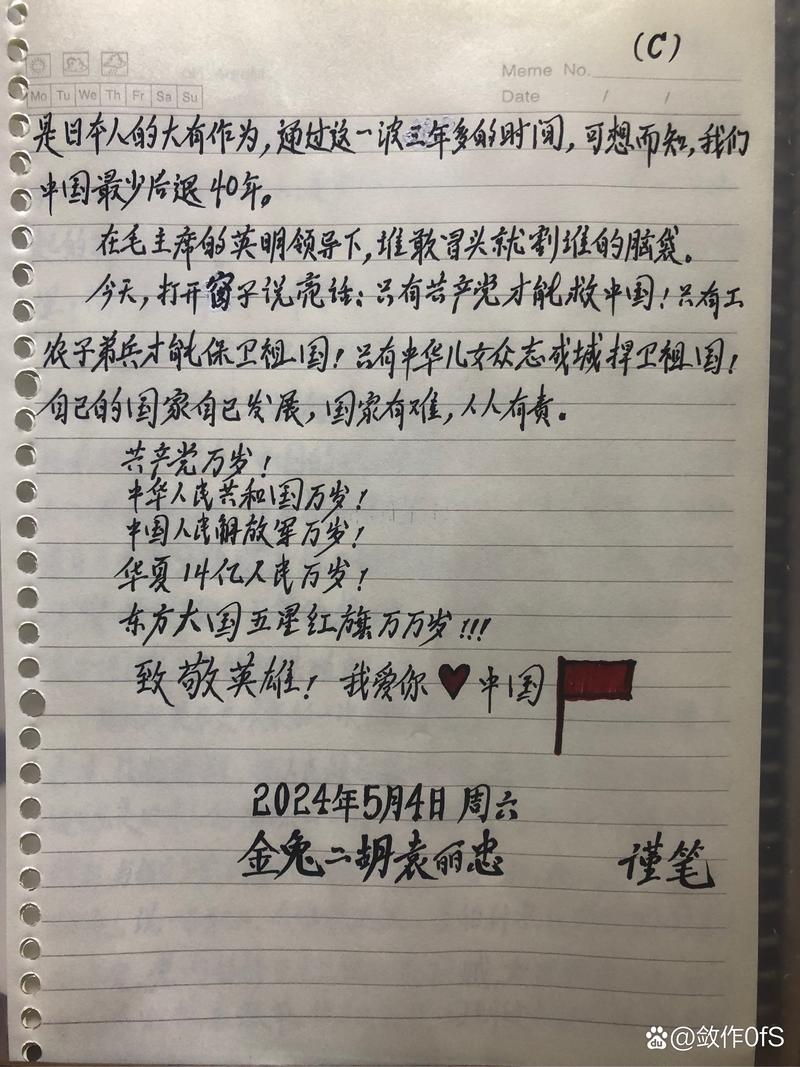 (C)
Meme No.
Mo Tu We Th Fr Sa Su
Date / /
是日本人的大有作为,通过这一波三年多的时间,可想而知,我们
中国最少后退40年。
在毛主席的英明领导下,谁敢冒头就割谁的脑袋。
今天,打开窗子说亮话:只有共产党才能救中国!只有工
农子弟兵才能保卫祖国!只有中华儿女众志成城捍卫祖国!
自己的国家自己发展,国家有难,人人有责。
共产党万岁!
中华人民共和国万岁!
中国人民解放军万岁!
华夏14亿人民万岁!
东方大国五星红旗万万岁!!!
致敬英雄!我爱你♥中国
2024年5月4日 周六
金兔二胡袁丽忠 谨笔
Bai du @敛作0fS